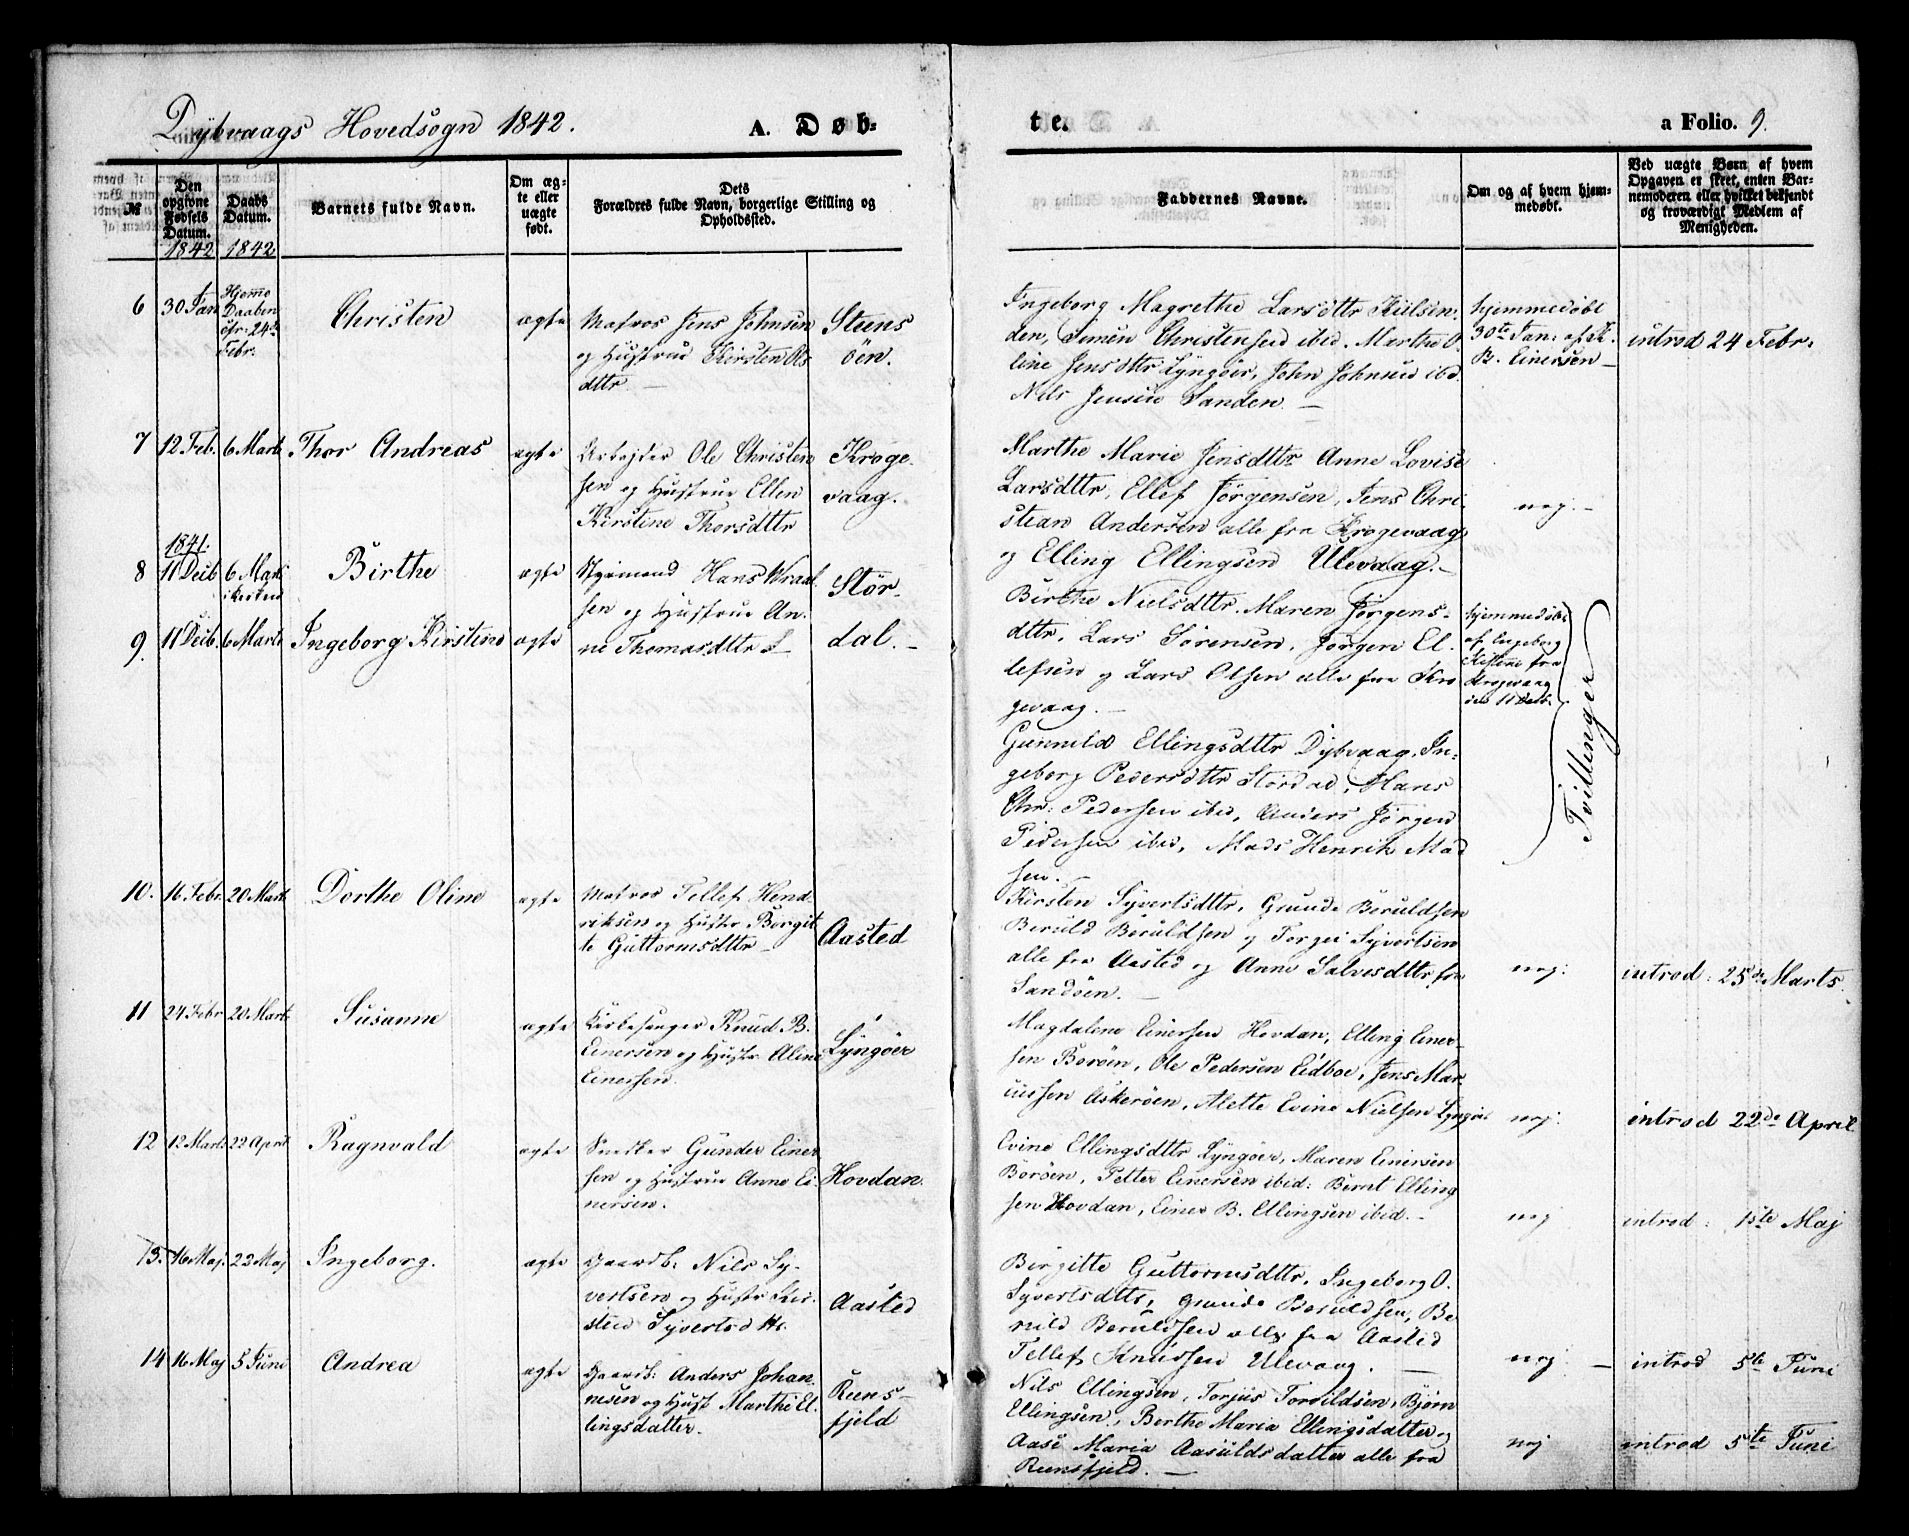 Dybvaags Hovedsogn 1842.
A. Døb-
te.
a Folio. 9.
№
Den opgivne Fødsels Datum.
1842
Daabs Datum.
1842
Barnets fulde Navn.
Om æg-
te eller
uægte
født.
Dets
Forældres fulde Navn, borgerlige Stilling og
Opholdssted.
Faddernes Navne.
Om og af hvem hjem-
medøbt.
Ved uægte Børn af hvem
Opgaven er skeet, enten Bar-
nemoderen eller hvilket bekjendt
og troværdigt Medlem af
Menigheden.
6
30 Jan
Hjemme
Daaben
24de
Febr.
Christen
ægte
Matros Jens Johnsen
og Hustrue Kirsten Ols
dttr. —
Steens
öen.
Ingeborg Magrethe Larsdttr
den, Simen Christensen ibid. Marthe O
line Jensdttr Lyngöer, John Johnsen ibd.
Nils Jensen Sanden. —
hjemmedöbt
30te Jan: af K.
B. Einersen —
introd 24 Febr.
7
12 Feb.
6 Marts
Thor Andreas
ægte
Arbejder Ole Christen
sen og Hustrue Ellen
Kirstine Thorsdttr
Kroge
vaag.
Marthe Marie Jensdttr Anne Lovise
Larsdttr, Ellef Jörgensen, Jens Chri
stian Andersen alle fra Krogevaag
og Elling Ellingsen Ulevaag. —
nej. —
1841:
8
11 Decb
6 Marts
i Kirken
Birthe
ægte
Styrmand Hans
sen og Hustrue An-
ne Thomasdttr
Stör-
dal. —
Birthe Nielsdttr. Maren Jörgens-
dttr, Lars Sörensen, Jörgen El-
lefsen og Lars Olsen alle fra Kro
gevaag. —
hjemmedöbt
af Ingeborg
Kistine fra
Krogevaag
den 11 Decb.
Tvillinger
9.
11 Decb.
6 Marts
Ingeborg Kirstine
ægte
Gunnild Ellingsdttr Dybvaag, In-
geborg Pedersdttr Stördal, Hans
Chr: Pedersen ibid, Anders Jörgen
Pedersen ibid, Mads Henrik Mad
sen. —
10.
16 Febr.
20 Mart.
Dorthe Oline
ægte
Matros Tellef Hend
riksen og Hustr Borgit
te Guttormsdttr —
Aasted
Kirsten Syvertsdttr, Grunde Beruldsen
Beruld Beruldsen og Torgei Syvertsen
alle fra Aasted og Anne Salvesdttr fra
Sandöen. —
nej:
introd: 25de Marts.
11
24 Febr
20 Mart.
Susanne
ægte
Kirkesanger Knud B.
Einersen og Hustr Aline
Einersen.
Lyngöer
Magdalene Einersen Hovdan, Elling Einer-
sen Boröen, Ole Pedersen Eidboe, Jens Mar-
cussen Askeröen, Alette Evine Nielsen Lyngöer
nej:
introd 22de April
12
12 Marts
22 April
Ragnvald
ægte
Snedker Gunder Einer
sen og Hustrue Anne Ei-
nersen.
Hovdan.
Evine Ellingsdttr Lyngöer, Maren Einersen
Boröen, Petter Einersen ibid: Bernt Elling
sen Hovdan, Einer B. Ellingsen ibid. —
nej
introd: 1ste Maj
13.
16 Maj.
22 Maj
Ingeborg.
ægte
Gaardb: Nils Sy-
vertsen og Hustr Kir-
sten Syvertsdttr.
Aasted
Birgitte Guttormsdttr, Ingeborg O.
Syvertsdttr, Grunde Beruldsen, Be
ruld Beruldsen alle fra Aasted
Tellef Knudsen Ulevaag. —
nej: —
introd 5te Juni
14
16 Maj
5 Juni
Andrea
ægte
Gaardb: Anders Johan
nesen og Hust Marthe El
lingsdatter.
Reens-
fjeld
Nils Ellingsen, Torjus Torvildsen, Björn
Ellingsen, Berthe Maria Ellingsdatter og
Aase Maria Aasuldsdatter alle fra
Reensfjeld. —
nej
introd 5te Juni